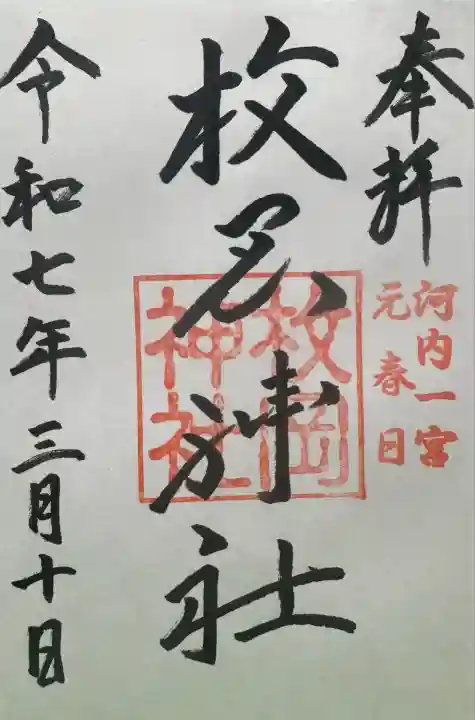 奉拝
河内一宮
元春日
枚岡神社
枚岡
神社
令和七年三月十日